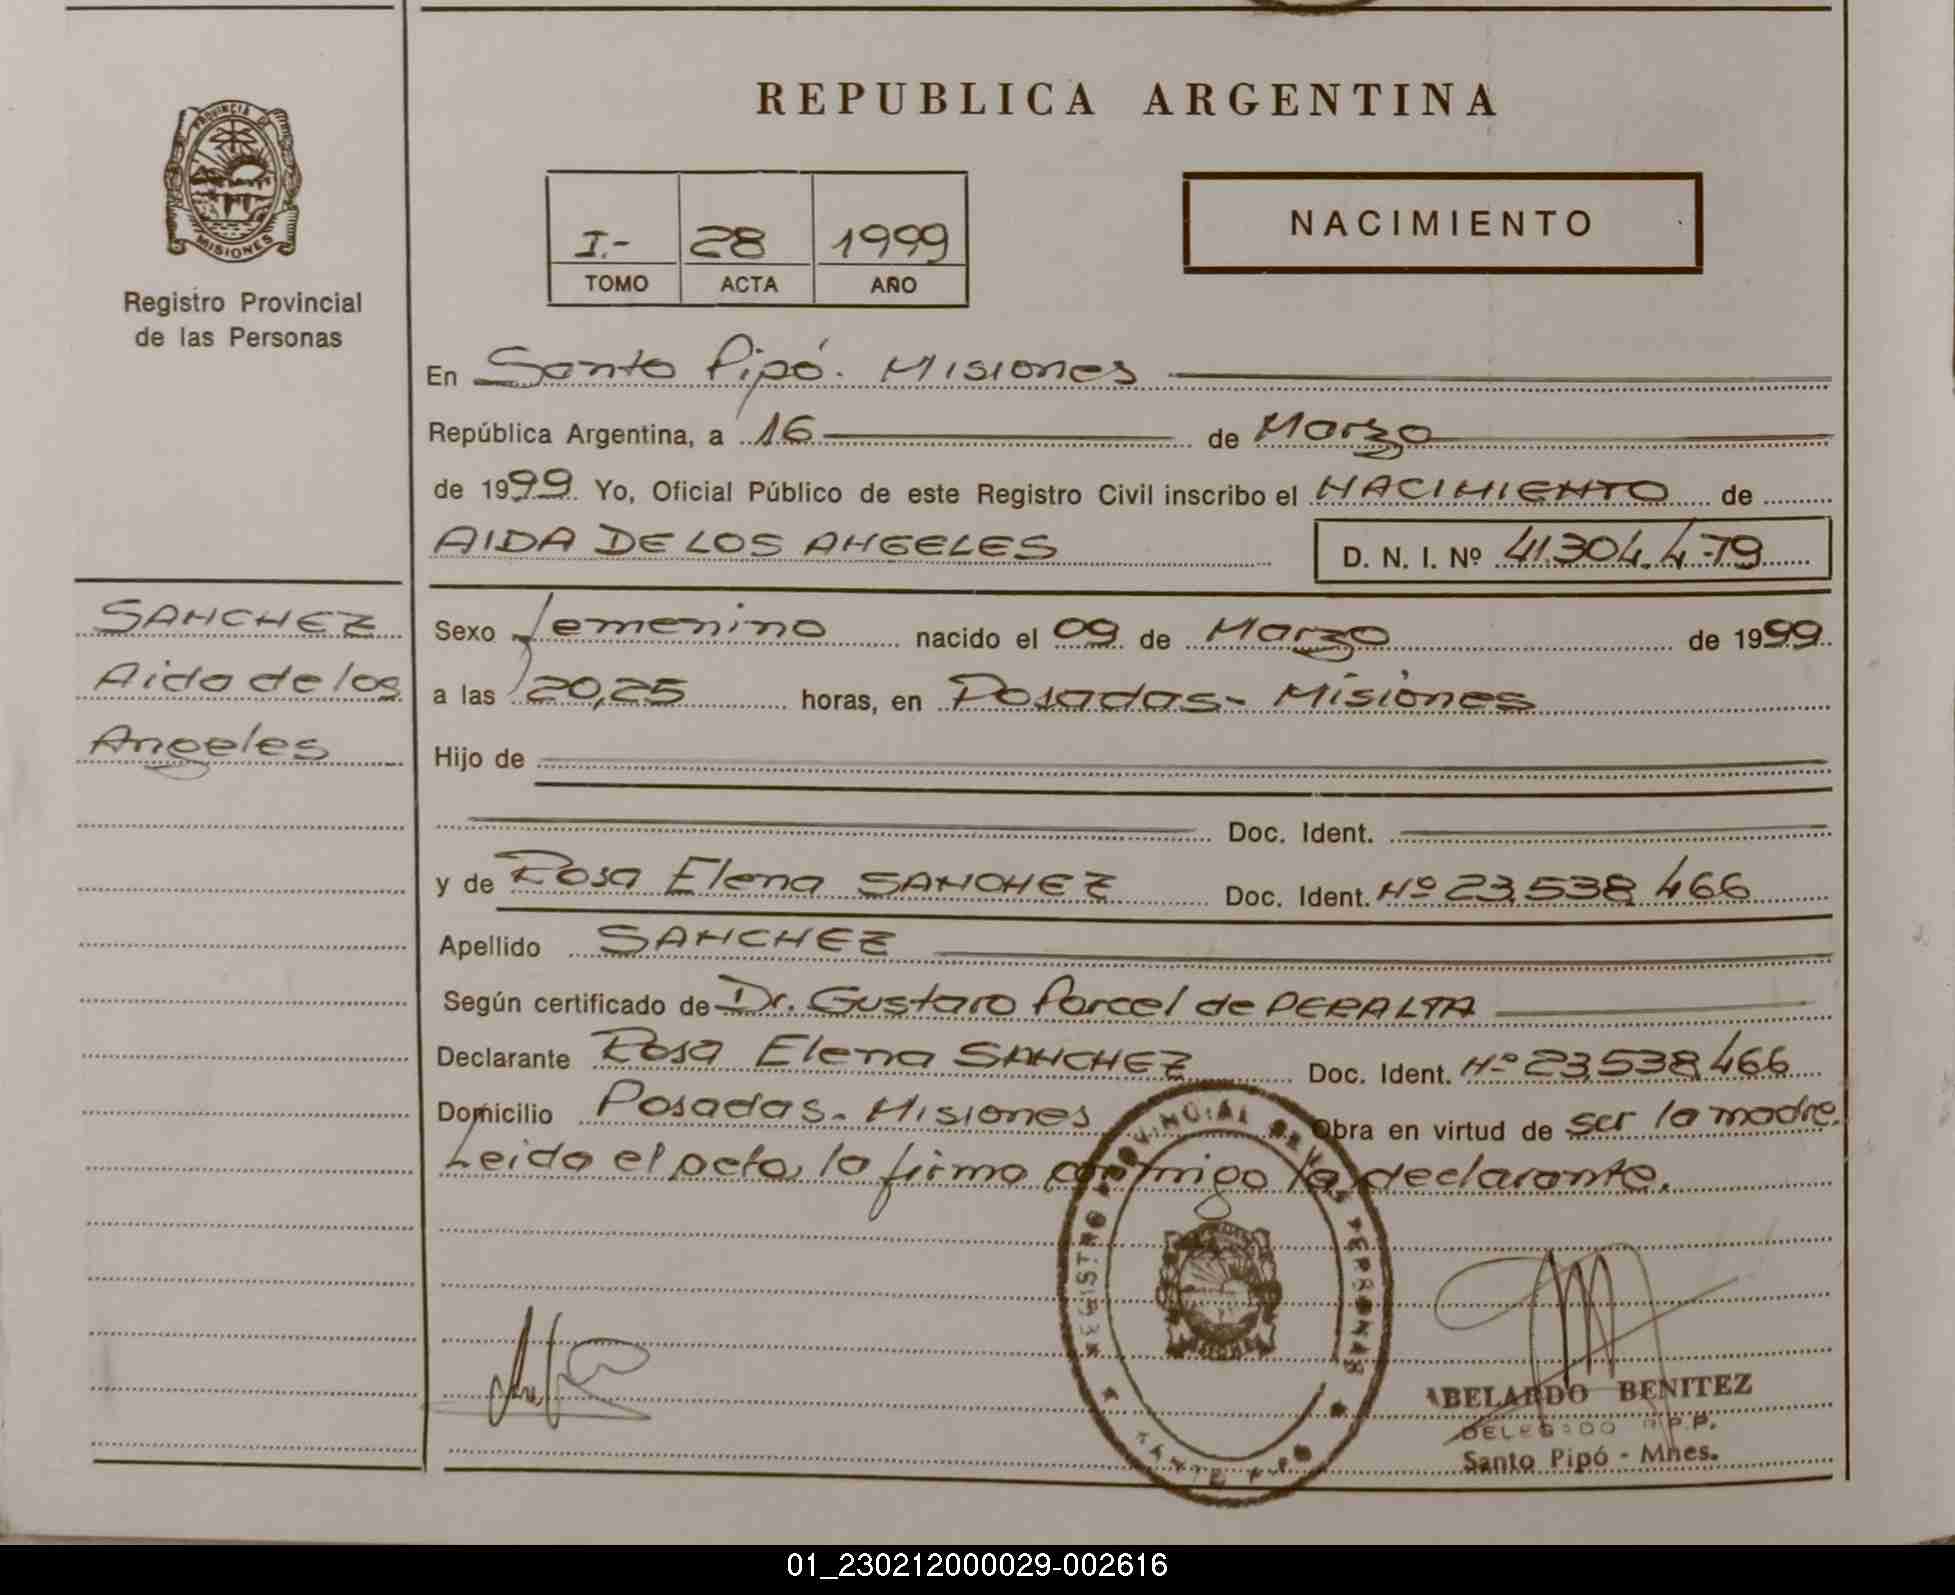 REPUBLICA ARGENTINA
PROVINCIA DE
MISIONES
Registro Provincial
de las Personas
I.- 28 1999
TOMO ACTA AÑO
NACIMIENTO
En Santo Pipó. Misiones
República Argentina, a 16 de Marzo
de 1999. Yo, Oficial Público de este Registro Civil inscribo el NACIMIENTO de
AIDA DE LOS ANGELES D. N. I. Nº 41.304.479
SANCHEZ
Aida de los
Angeles
Sexo femenino nacido el 09 de Marzo de 1999.
a las 20,25 horas, en Posadas- Misiones
Hijo de
Doc. Ident.
y de Rosa Elena SANCHEZ Doc. Ident. Nº 23.538.466
Apellido SANCHEZ
Según certificado de Dr. Gustavo Porcel de PERALTA
Declarante Rosa Elena SANCHEZ Doc. Ident. Nº 23.538.466
Domicilio Posadas- Misiones Obra en virtud de ser la madre.
Leido el acta, la firma conmigo la declarante.
REGISTRO PROVINCIAL DE LAS PERSONAS
MISIONES
ABELARDO BENITEZ
DELEGADO R.P.P.
Santo Pipó - Mnes.
01_230212000029-002616